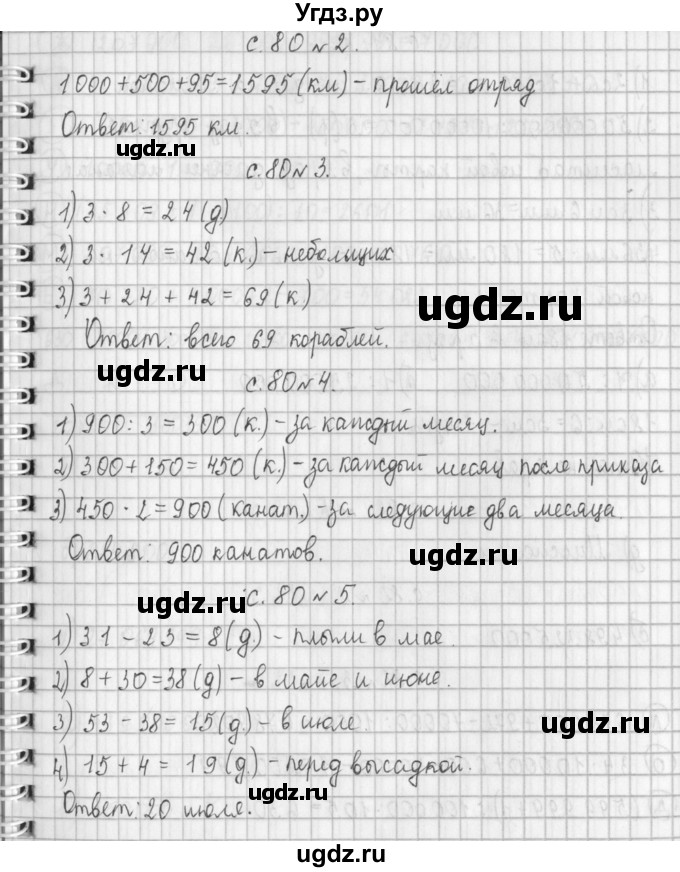 Угдз.ру
с. 80 № 2.
1000+500+95=1595 (км) - прошёл отряд
Ответ: 1595 км.
ugdz.ru
с. 80 № 3.
1) 3 · 8 = 24 (д.)
2) 3 · 14 = 42 (к.) - небольших
3) 3 + 24 + 42 = 69 (к.)
ugdz.ru
Ответ: всего 69 кораблей.
ugdz.ru
с. 80 № 4.
1) 900 : 3 = 300 (к.) - за каждый месяц.
2) 300 + 150 = 450 (к.) - за каждый месяц после приказа
3) 450 · 2 = 900 (канат.) - за следующие два месяца.
Ответ: 900 канатов.
ugdz.ru
ugdz.ru
с. 80 № 5.
1) 31 - 23 = 8 (д.) - плыли в мае.
2) 8 + 30 = 38 (д) - в майе и июне.
3) 53 - 38 = 15 (д.) - в июле.
ugdz.ru
4) 15 + 4 = 19 (д.) - перед высадкой.
ugdz.ru
Ответ: 20 июля.
ugdz.ru